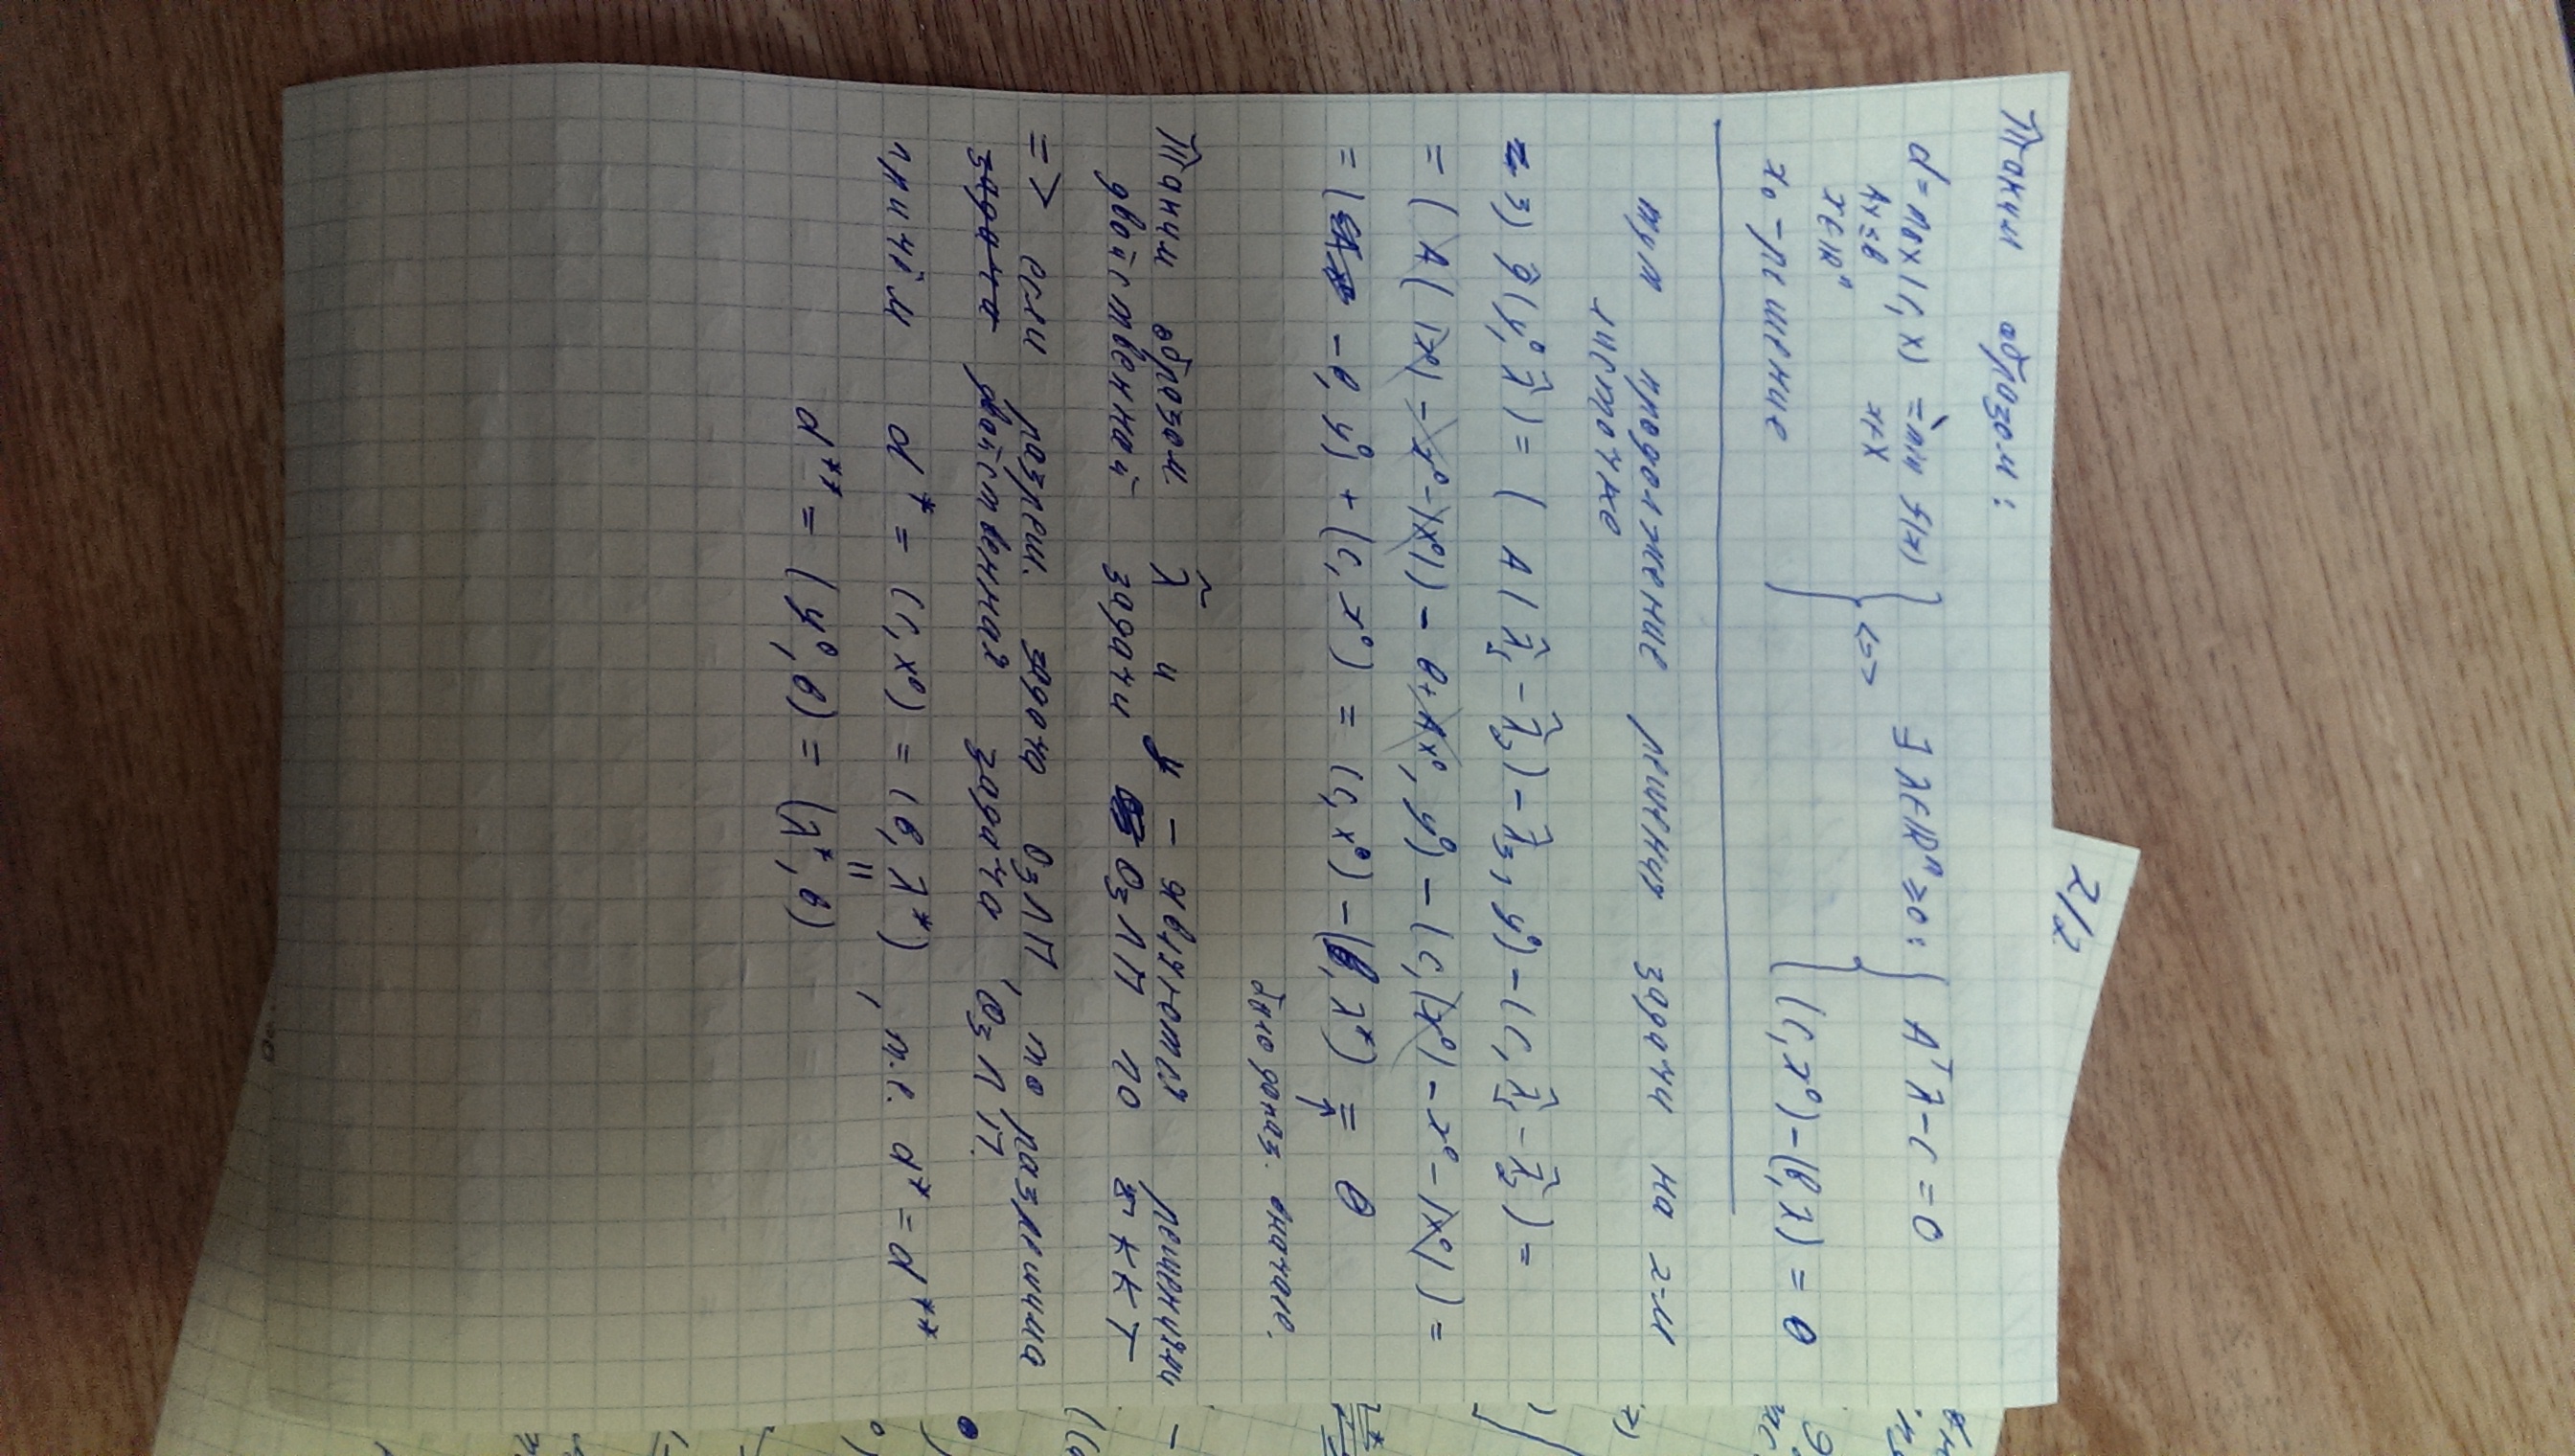 2/2
Таким образом:
d = max (c, x) = min f(x)
Ax ≤ b x∈X
x∈ℝⁿ
x₀ – решение
<=>
∃ λ∈ℝⁿ ≥ 0: { Aᵀλ – c = 0
(c, x⁰) – (b, λ) = 0
тут продолжение решения задачи на 2-м
листочке
3) g̃(y⁰, λ̃) = (A(λ̃₁ – λ̃₂) – λ̃₃, y⁰) – (c, λ̃₁ – λ̃₂) =
= (A(|x⁰| – x⁰ – |x⁰|) – b + Ax⁰, y⁰) – (c, |x⁰| – x⁰ – |x⁰|) =
= ( – b, y⁰) + (c, x⁰) = (c, x⁰) – (b, λ*) = 0
было доказ. вначале.
Таким образом λ̃ и y – являются решениями –
двойственной задачи ОЗЛП по ККТ
=> если разреш. задача ОЗЛП, то разрешима
задача двойственная задача ОЗЛП.
причём d* = (c, x⁰) = (b, λ*), т.е. d* = d**
||
d** = (y⁰, b) = (λ*, b)